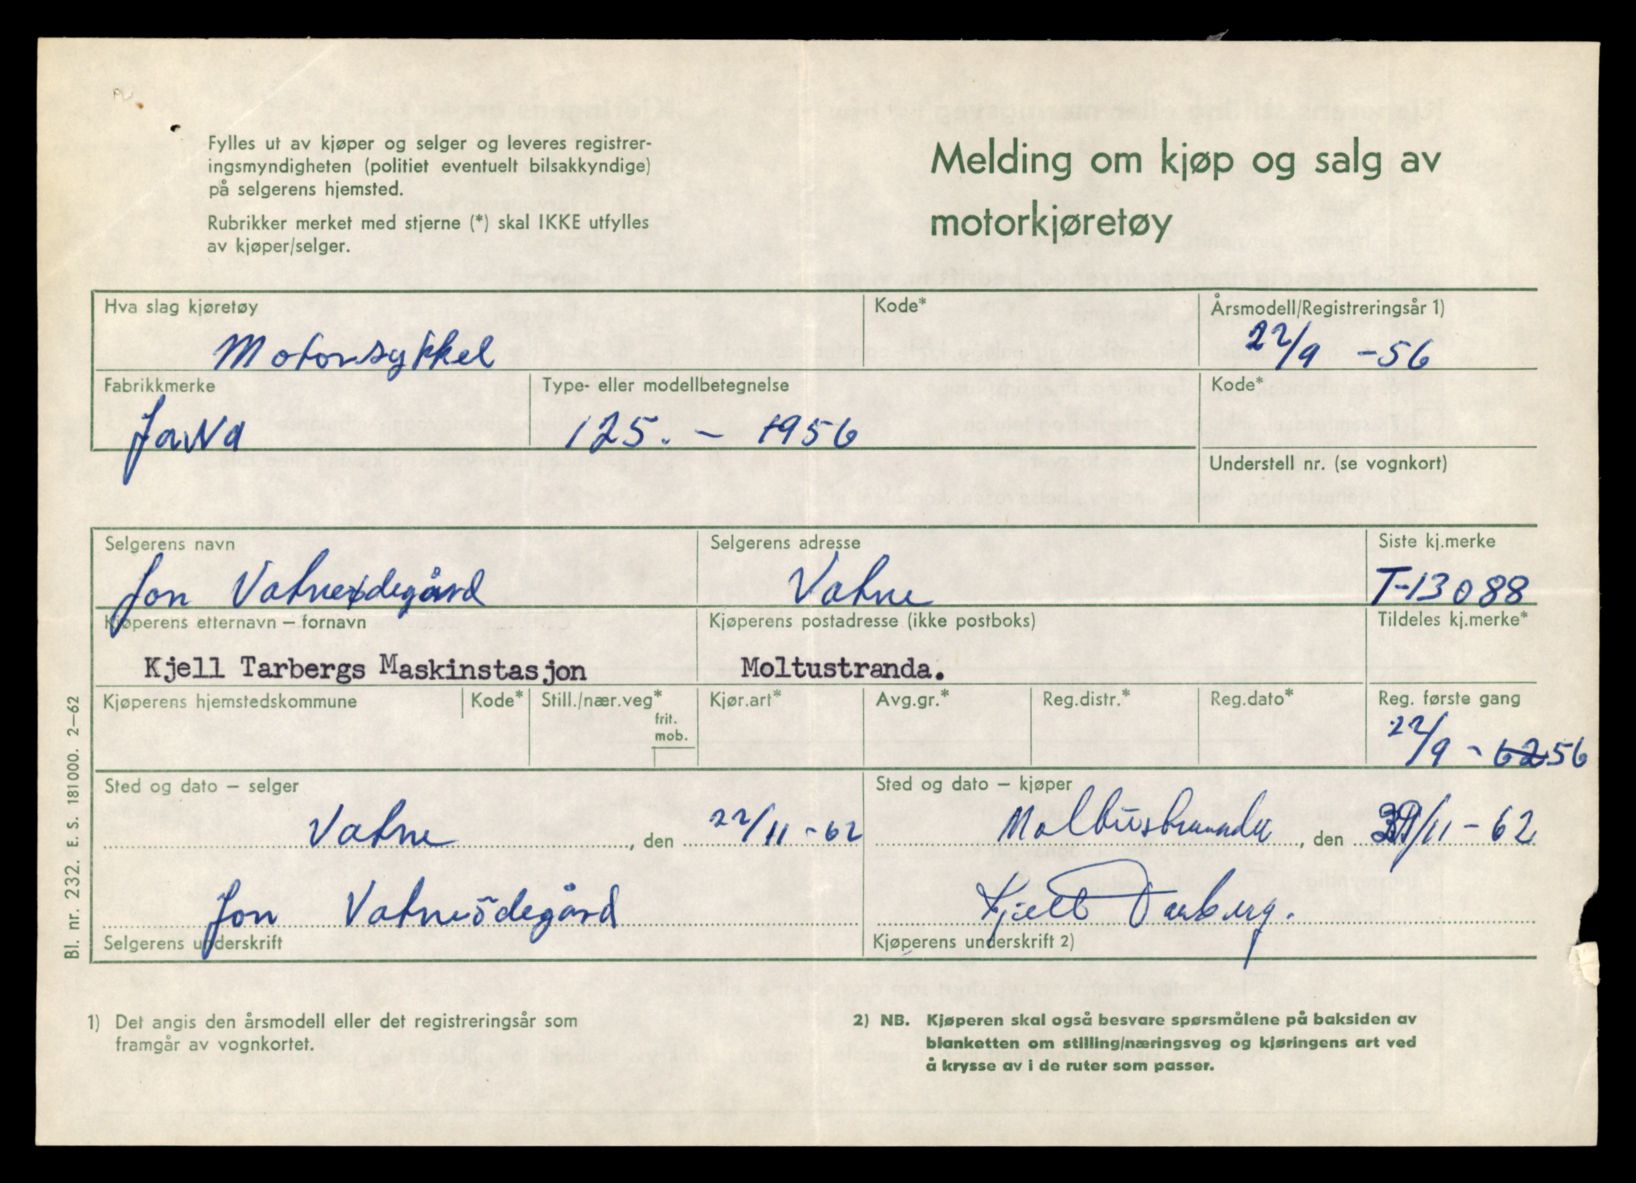 Fylles ut av kjøper og selger og leveres registrer-
ingsmyndigheten (politiet eventuelt bilsakkyndige)
på selgerens hjemsted.
Rubrikker merket med stjerne (*) skal IKKE utfylles
av kjøper/selger.
Melding om kjøp og salg av
motorkjøretøy
Hva slag kjøretøy
Kode*
Årsmodell/Registreringsår 1)
Motorsykkel
22/9 -56
Fabrikkmerke
Type- eller modellbetegnelse
Kode*
JaWa
125. - 1956
Understell nr. (se vognkort)
Selgerens navn
Selgerens adresse
Siste kj.merke
Jon Vatneødegård
Vatne
T-13088
Kjøperens etternavn – fornavn
Kjøperens postadresse (ikke postboks)
Tildeles kj.merke*
Kjell Tarbergs Maskinstasjon
Moltustranda.
Kjøperens hjemstedskommune
Kode*
Still./nær.veg*
frit.
mob.
Kjør.art*
Avg.gr.*
Reg.distr.*
Reg.dato*
Reg. første gang
22/9 - 62 56
Sted og dato – selger
Sted og dato – kjøper
Vatne, den 22/11 - 62
Moltustranda, den /11 - 62
Jon Vatneödegård
Kjell Tarberg.
Selgerens underskrift
Kjøperens underskrift 2)
Bl. nr. 232. E. S. 181000. 2–62
1) Det angis den årsmodell eller det registreringsår som
framgår av vognkortet.
2) NB. Kjøperen skal også besvare spørsmålene på baksiden av
blanketten om stilling/næringsveg og kjøringens art ved
å krysse av i de ruter som passer.